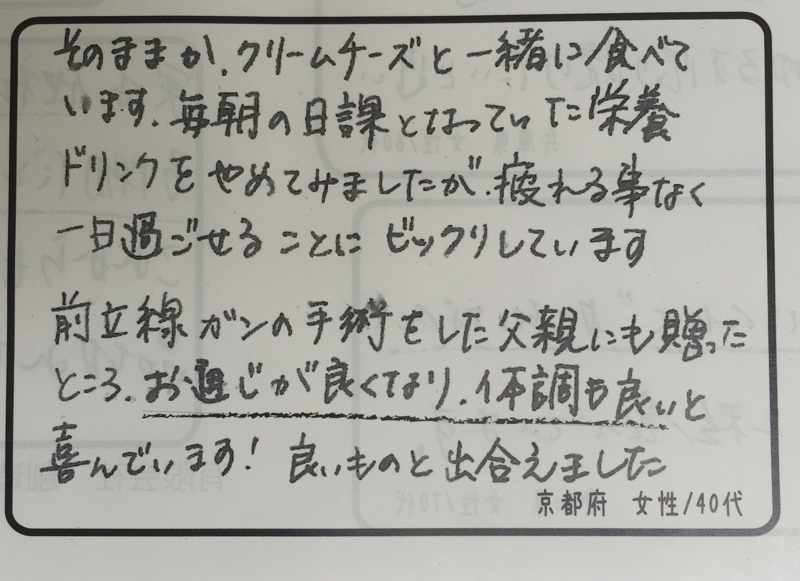 そのままか、クリームチーズと一緒に食べて
います。毎朝の日課となっていた栄養
ドリンクをやめてみましたが、疲れる事なく
一日過ごせることにビックリしています
前立線ガンの手術をした父親にも贈った
ところ、お通じが良くなり、体調も良いと
喜んでいます! 良いものと出合えました
京都府 女性/40代